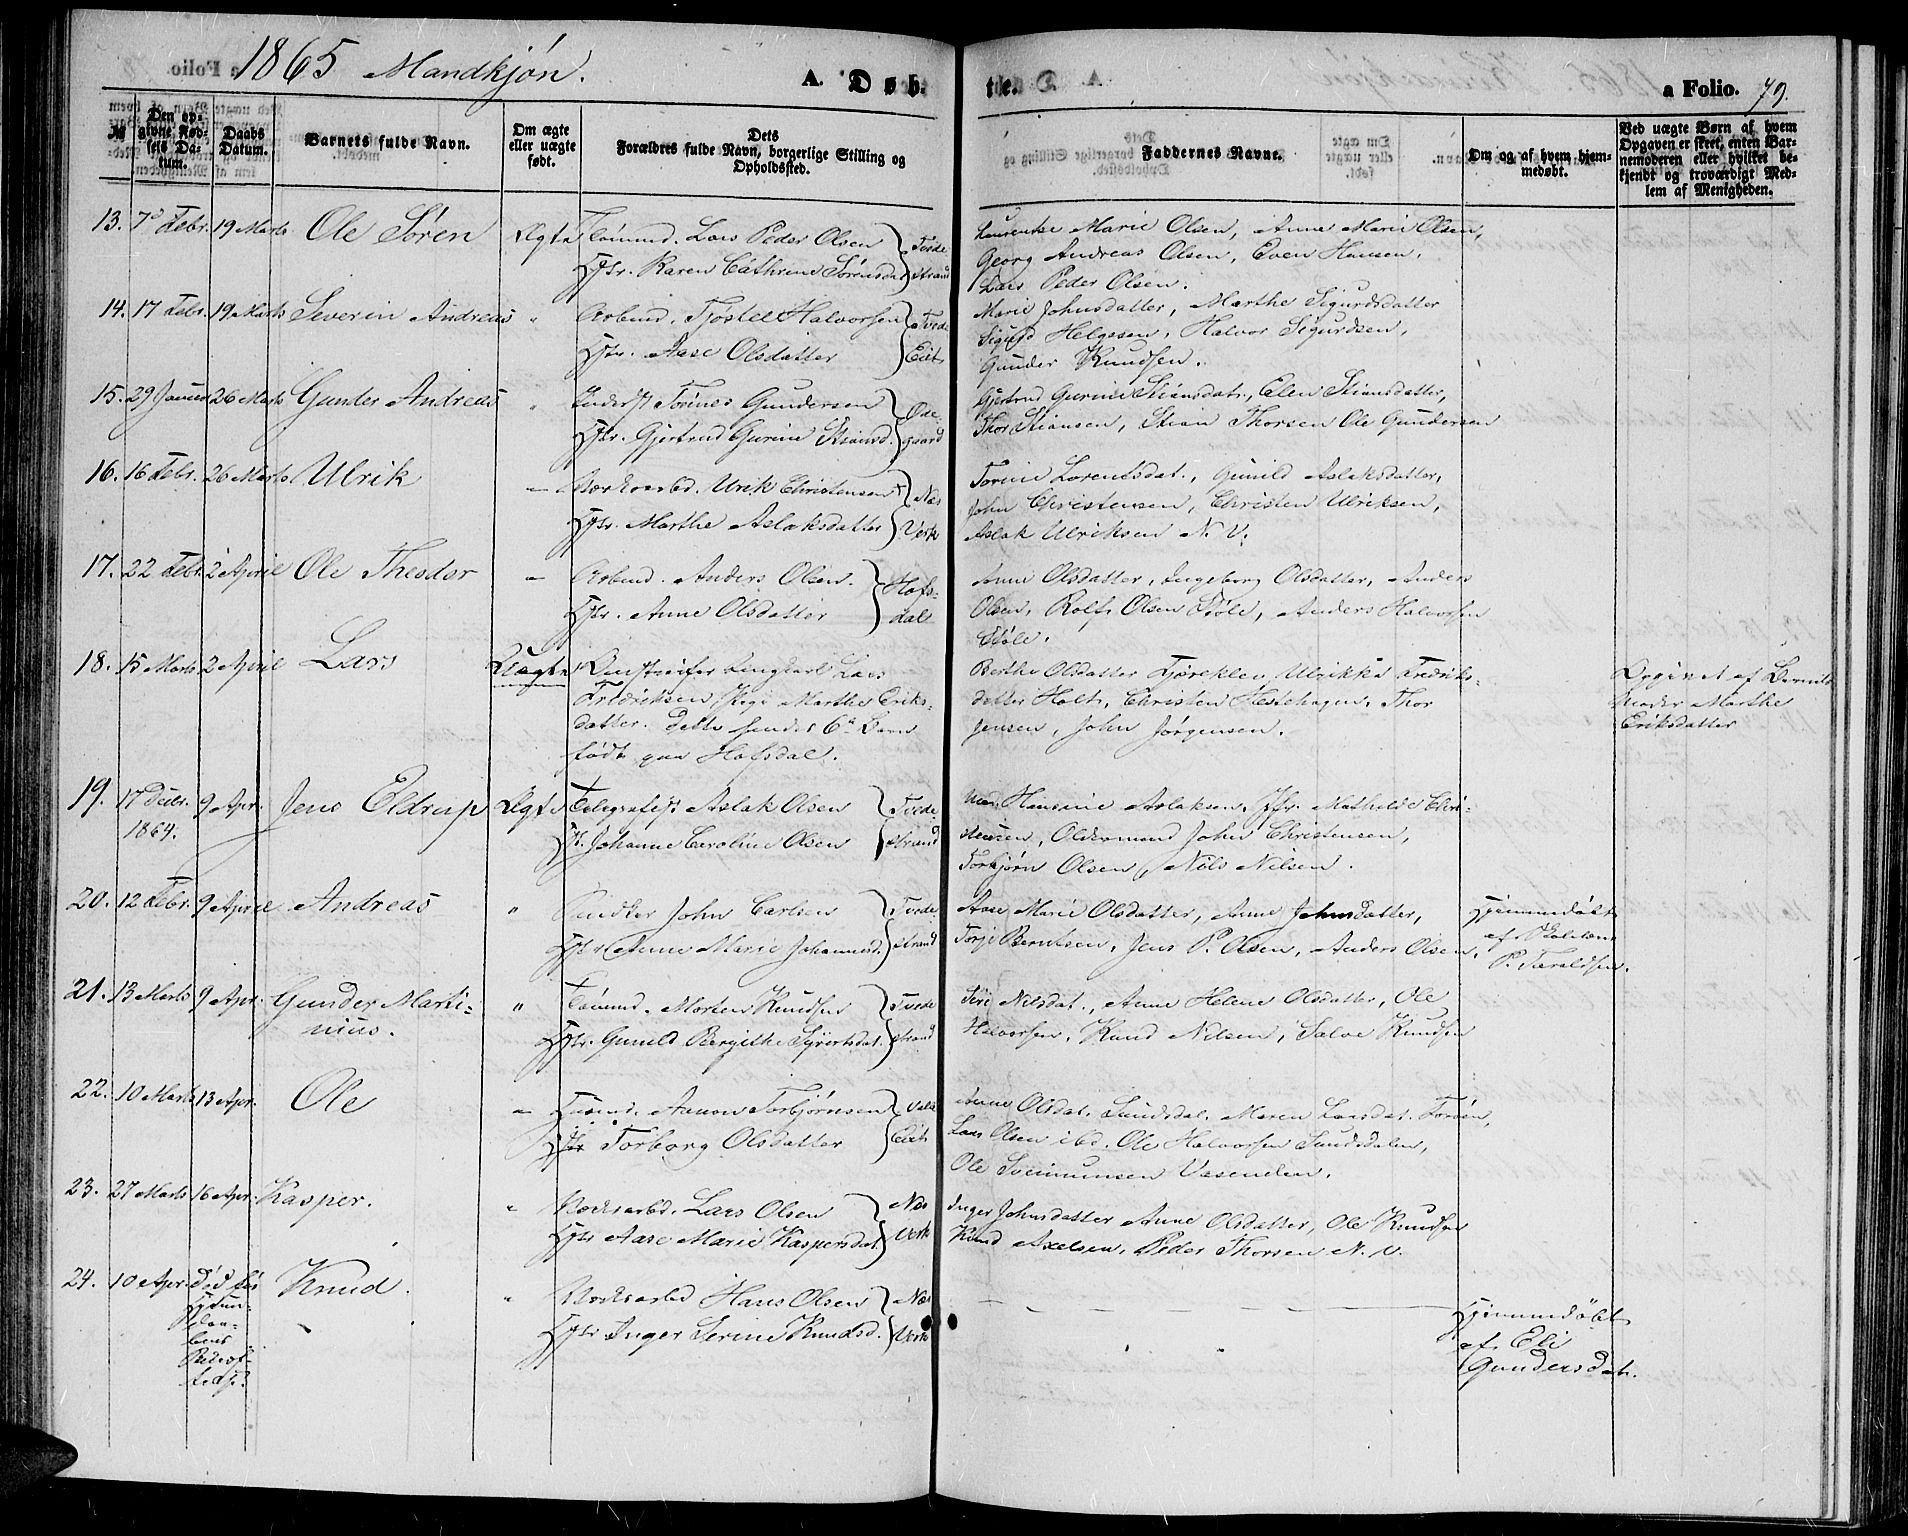 1865 Mandkjøn.
A. Døb-
te.
a Folio. 79.
№
Den op-
givne Fød-
sels Da-
tum.
Daabs
Datum.
Barnets fulde Navn.
Om ægte
eller uægte
født.
Dets
Forældres fulde Navn, borgerlige Stilling og
Opholdssted.
Faddernes Navne.
Om og af hvem hjem-
medøbt.
Ved uægte Børn af hvem
Opgaven er skeet, enten Bar-
nemoderen eller hvilket be-
kjendt og troværdigt Med-
lem af Menigheden.
13. 7d Febr. 19 Marts Ole Søren Ægte Tømmd. Lars Peder Olsen Tvede-
Hstr. Karen Cathrine Sørensdat. strand
Laurentse Marie Olsen, Anne Marie Olsen,
Georg Andreas Olsen, Even Hansen,
Lars Peder Olsen.
14. 17 Febr. 19 Marts Severin Andreas " Arbmd. Tjostel Halvorsen Tvede
Hstr. Aase Olsdatter Eiet
Marie Johnsdatter, Marthe Sigurdsdatter
Sigurd Helgesen, Halvor Sigurdsen,
Gunder Knudsen.
15. 29 Januar 26 Marts Gunder Andreas " Inderst Tørines Gundersen Øde-
Hstr. Gjertrud Gurine Stiansd. gaard
Gjertrud Gurine Stiansdat., Elen Stiansdatter,
Thor Stiansen, Stian Thorsen Ole Gundersen
16. 16 Febr. 26 Marts Ulrik — Værksarbd. Ulrik Christensen Næs
Hstr. Marthe Aslaksdatter Verk
Torine Lorentsdat., Gunild Aslaksdatter,
John Christensen, Christen Ulriksen,
Aslak Ulriksen N. V.
17. 22 Febr. 2 April Ole Theodor — Arbmd. Anders Olsen. Hofs-
Hstr. Anne Olsdatter dal
Anne Olsdatter, Ingeborg Olsdatter, Anders
Olsen, Rolf Olsen Støle, Anders Halvorsen
Støle.
18. 15 Marts 2 April Lars Uægte Ungkarl Lars
Fredriksen, Pige Marthe Eriks-
datter. Dette hendes 6te Barn
født paa Hofsdal.
Berthe Olsdatter Fjæreklev, Ulrikke Fredriks-
datter Holt, Christen Hestehagen, Thor
Jensen, John Jørgensen.
Opgivet af Barnets
Moder Marthe
Eriksdatter
19. 17 Decbr. 9 Apr. Jens Eldrup Ægte Telegrafist Aslak Olsen Tvede
1864. Johanne Caroline Olsen strand
Mad. Hansine Aslaksen, Jfr. Mathilde Chri-
stensen, Oldermand John Christensen,
Torbjørn Olsen, Nils Nilsen.
20. 12 Febr. 9 April Andreas " Snedker John Carlsen Tvede
Hstr. Anne Marie Johannesd. strand
Aase Marie Olsdatter, Anne Johnsdatter,
Torje Berntsen, Jens P. Olsen, Anders Olsen.
Hjemmedøbt
af Skolelærer
P. Taraldsen.
21. 13 Marts 9 Apr. Gunder Marti-
nius. " Tømmd. Morten Knudsen Tvede
Hstr. Gunild Bergithe Syvertsdat. strand
Siri Nilsdat., Anne Helene Olsdatter, Ole
Halvorsen, Knud Nilsen, Salve Knudsen
22. 10 Marts 13 Apr. Ole " Husmd. Aanon Torbjørnsen
Hstr Torborg Olsdatter Eiet
Anne Olsdat. Sundsdal, Maren Larsdat.
Lars Olsen ibd. Ole Halvorsen Sundsdalen,
Ole Sveinunsen Vasenden.
23. 27 Marts 16 Apr. Kasper. " Værksarbd. Lars Olsen Næs
Hstr Aase Marie Kaspersdat. Verk
Inger Johnsdatter Anne Olsdatter, Ole Knudsen
Knud Axelsen, Peder Thorsen N. V.
24. 10 Apr. Død før Knud. " Værksarbd Hans Olsen Næs
Hstr Inger Serine Knudsd. Verk
Hjemmedøbt
af Eli
Gundersdat.